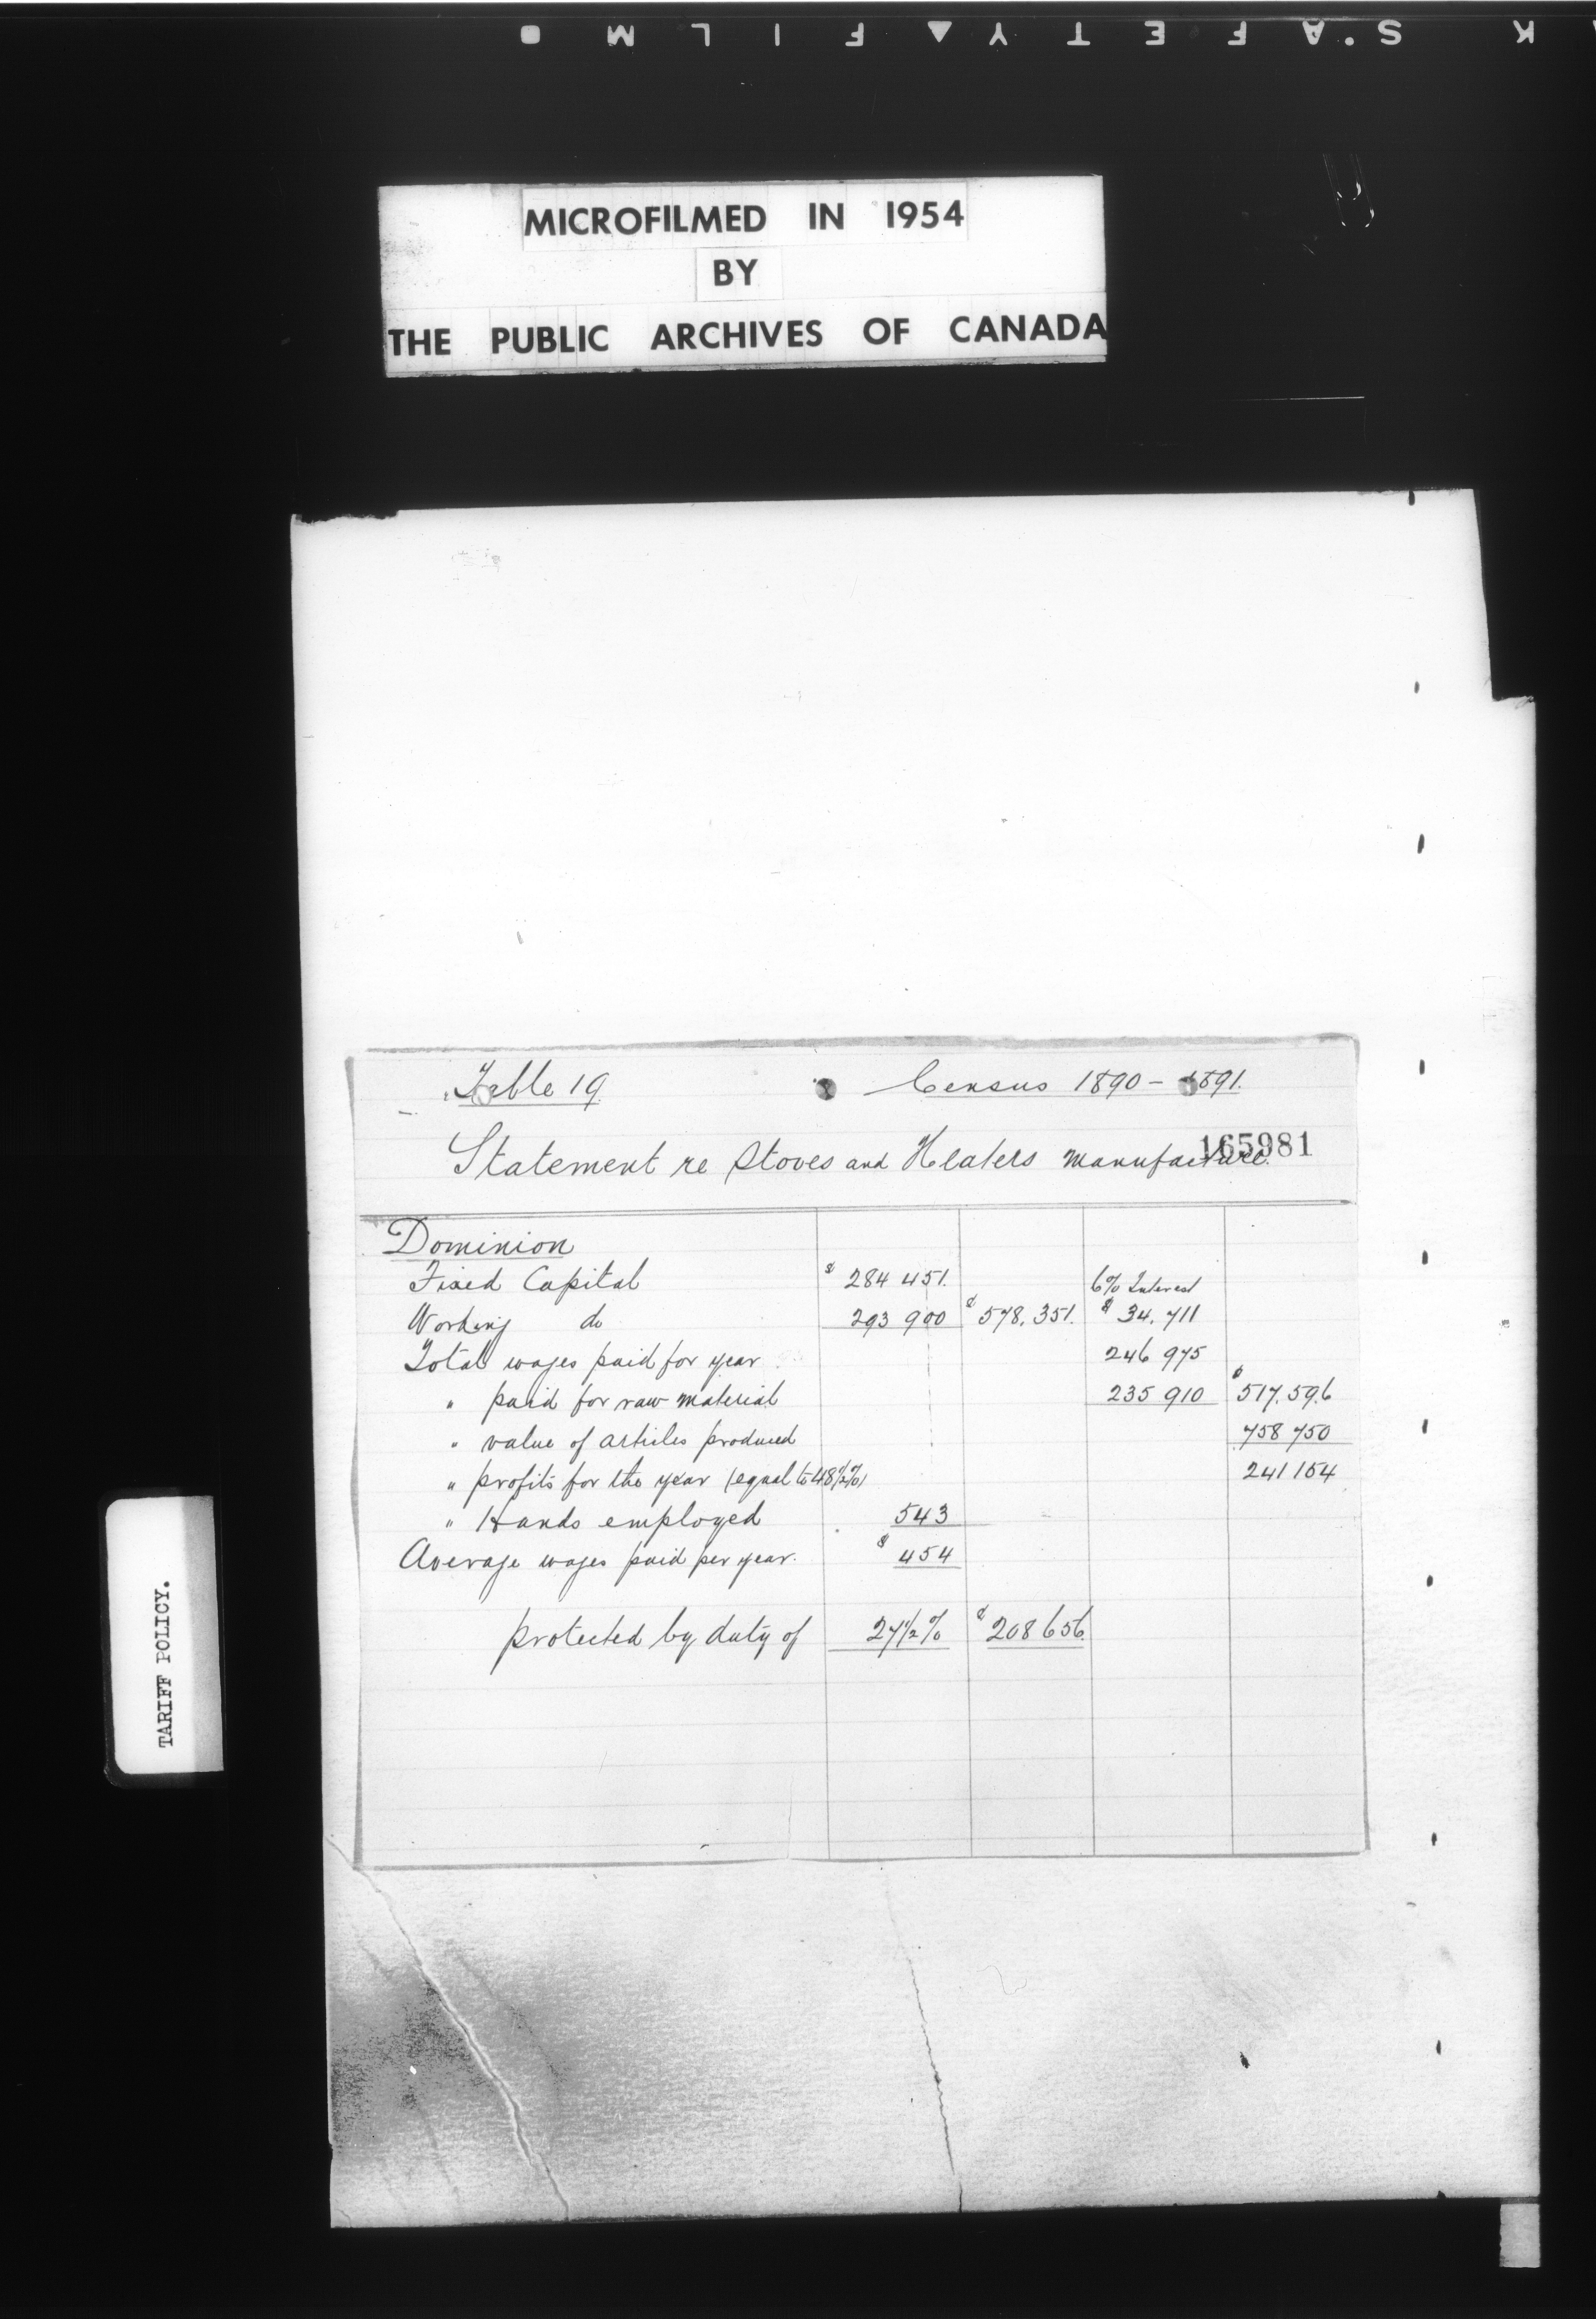 K S.AFETY▲FILM
MICROFILMED IN 1954
BY
THE PUBLIC ARCHIVES OF CANADA
Table 19 Census 1890 - 1891.
165981
Statement re Stoves and Heaters Manufacture.
Dominion
Fixed Capital $ 284 451. 6% Interest
Working do 293 900 $ 578.351. $ 34.711
Total wages paid for year 246 975
" paid for raw material 235 910 $ 517.596
" value of articles produced 758 750
" profits for the year (equal to 48½%) 241 154
" Hands employed 543
Average wages paid per year. $ 454
protected by duty of 27½% $ 208656.
TARIFF POLICY.